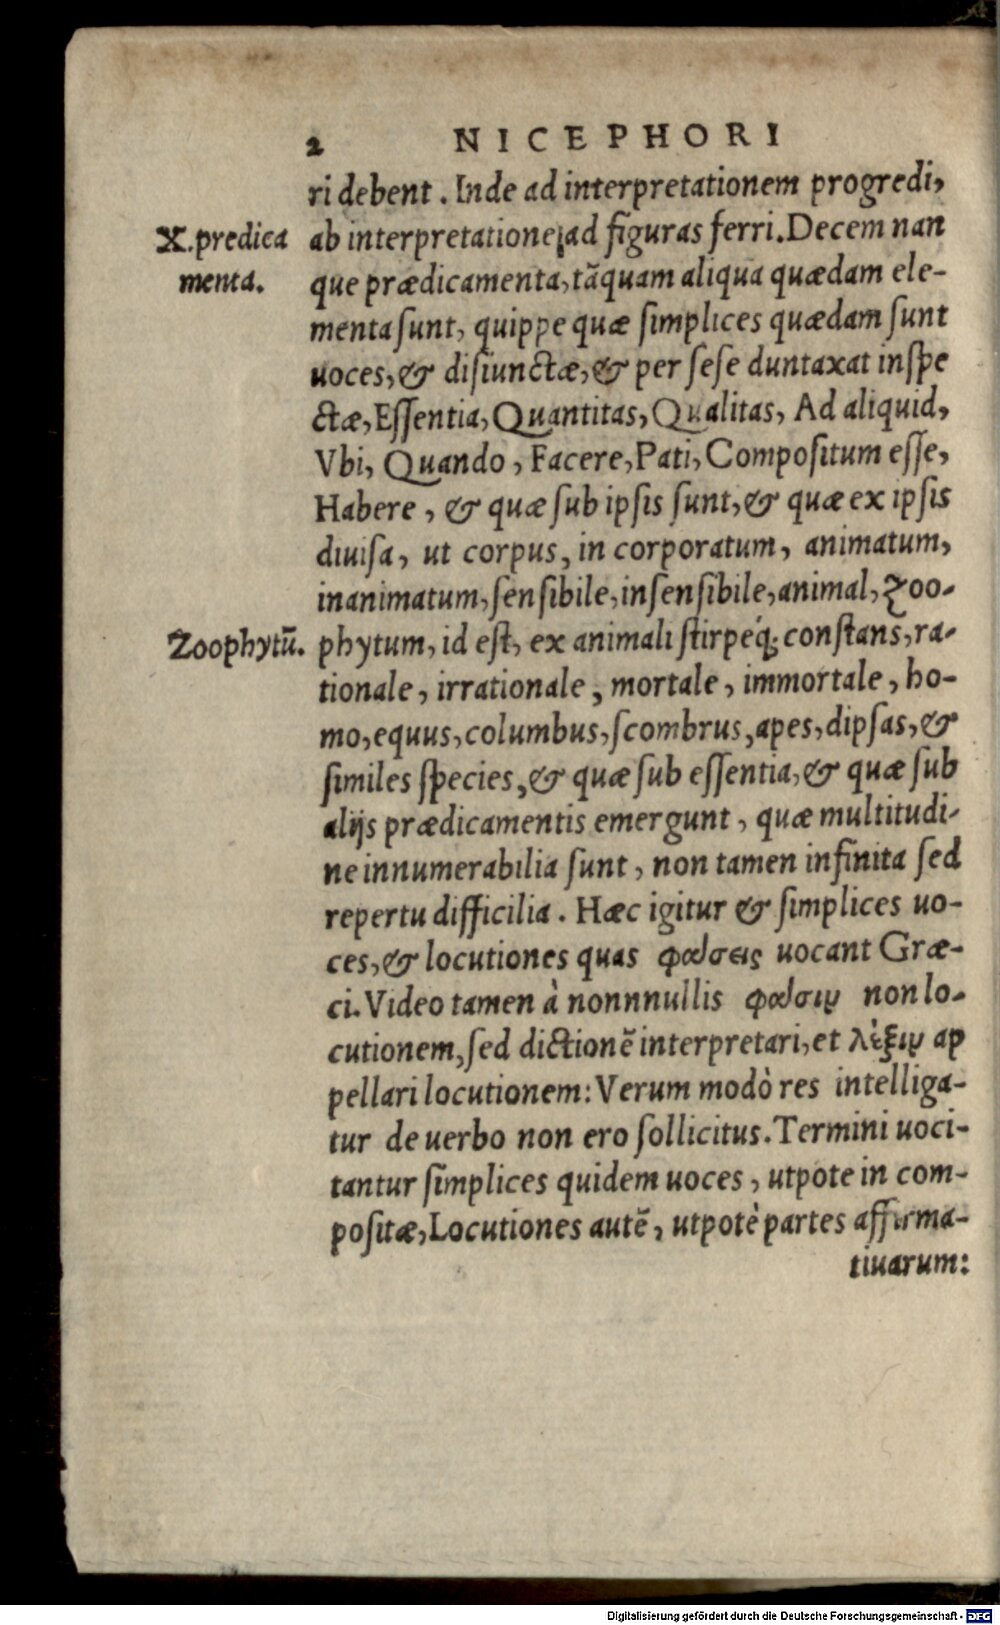 2 NICEPHORI
ri debent. Inde ad interpretationem progredi,
X.predica
menta.
ab interpretatione ad figuras ferri. Decem nan
que prædicamenta, tāquam aliqua quædam ele-
menta sunt, quippe quæ simplices quædam sunt
uoces, & disiunctæ, & per sese duntaxat inspe
ctæ, Essentia, Quantitas, Qualitas, Ad aliquid,
Vbi, Quando, Facere, Pati, Compositum esse,
Habere, & quæ sub ipsis sunt, & quæ ex ipsis
diuisa, ut corpus, in corporatum, animatum,
inanimatum, sensibile, insensibile, animal, zoo-
Zoophytū.
phytum, id est, ex animali stirpeq́; constans, ra-
tionale, irrationale, mortale, immortale, ho-
mo, equus, columbus, scombrus, apes, dipsas, &
similes species, & quæ sub essentia, & quæ sub
alijs prædicamentis emergunt, quæ multitudi-
ne innumerabilia sunt, non tamen infinita sed
repertu difficilia. Hæc igitur & simplices uo-
ces, & locutiones quas φάσεις uocant Græ-
ci. Video tamen à nonnnullis φάσιν non lo-
cutionem, sed dictionē interpretari, et λέξιν ap
pellari locutionem: Verum modò res intelliga-
tur de uerbo non ero sollicitus. Termini uoci-
tantur simplices quidem uoces, utpote in com-
positæ, Locutiones autē, utpotè partes affirma-
tiuarum:
Digitalisierung gefördert durch die Deutsche Forschungsgemeinschaft - DFG